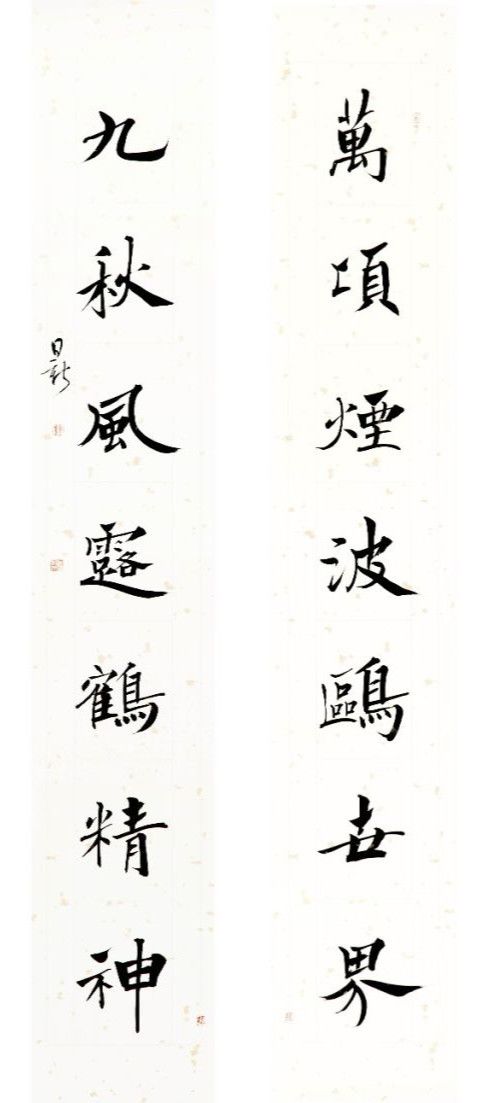 萬頃煙波鷗世界
九秋風露鶴精神